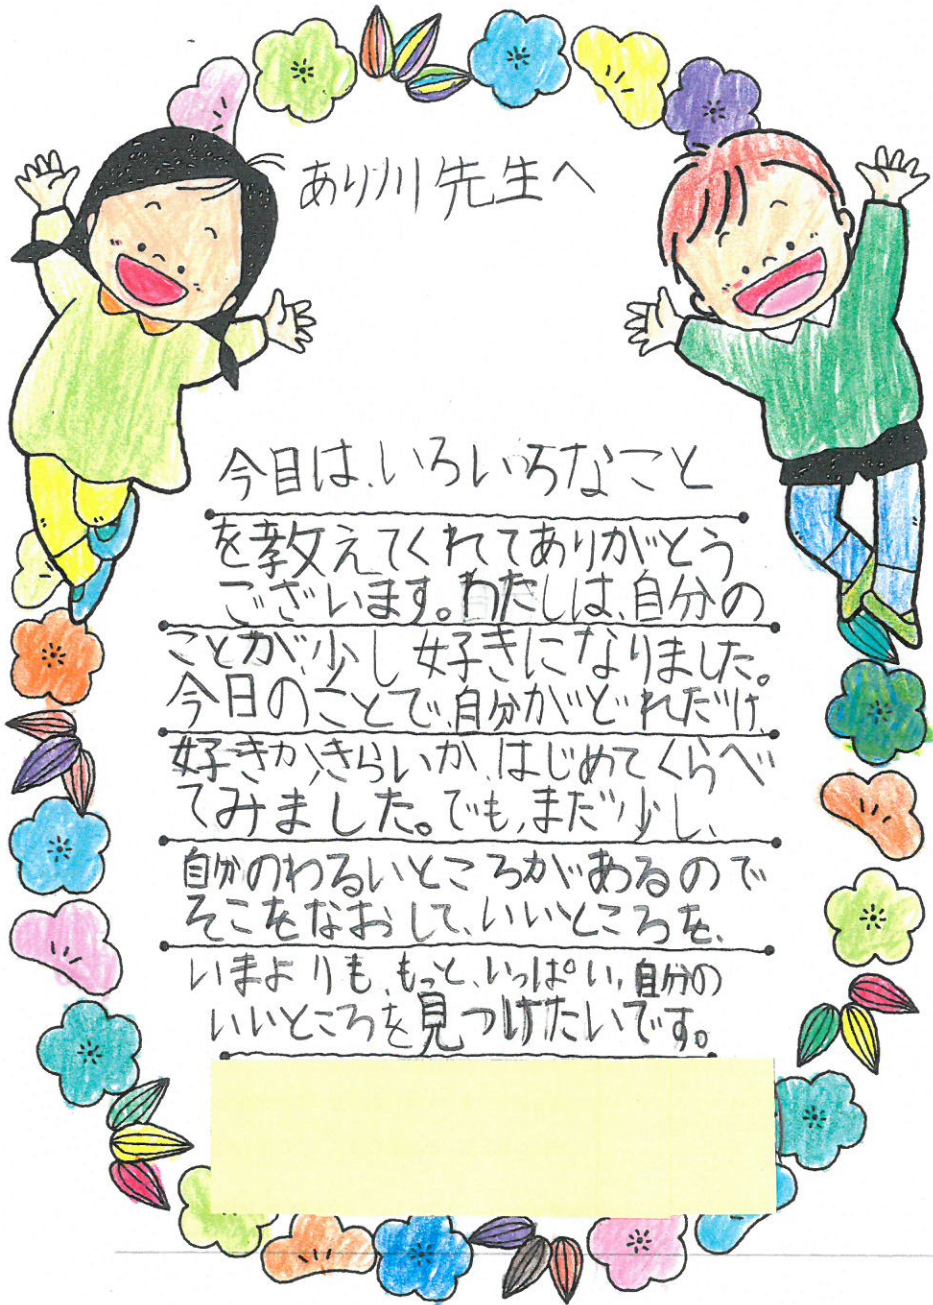 あり川先生へ
今日は、いろいろなこと
を教えてくれてありがとう
ございます。わたしは、自分の
ことが、少し好きになりました。
今日のことで、自分がどれだけ
好きか、きらいか、はじめてくらべ
てみました。でも、まだ少し、
自分のわるいところがあるので
そこをなおして、いいところを、
いまよりも、もっと、いっぱい、自分の
いいところを見つけたいです。